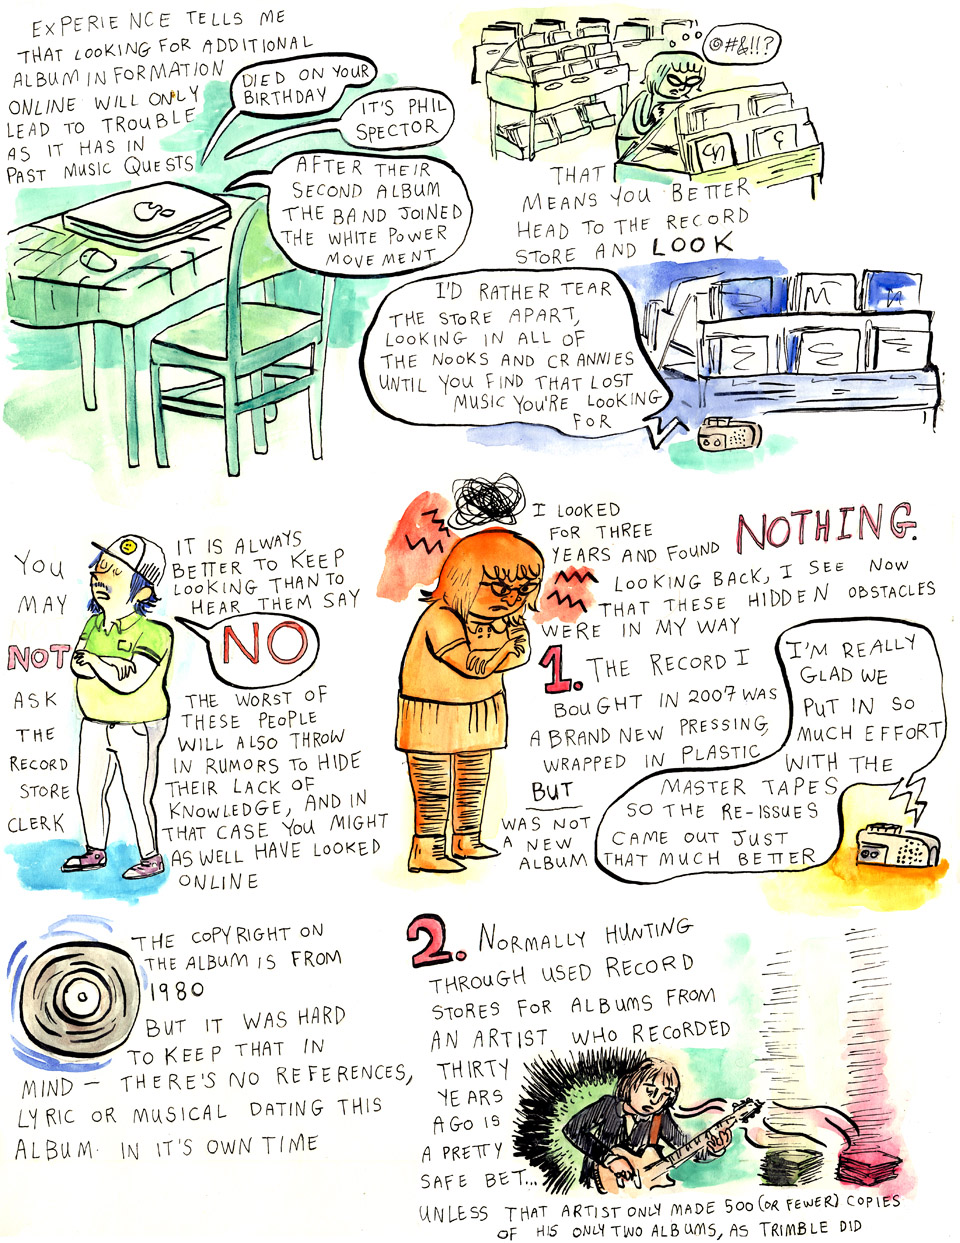 EXPERIENCE TELLS ME
THAT LOOKING FOR ADDITIONAL
ALBUM INFORMATION
ONLINE WILL ONLY
LEAD TO TROUBLE
AS IT HAS IN
PAST MUSIC QUESTS
DIED ON YOUR
BIRTHDAY
IT'S PHIL
SPECTOR
AFTER THEIR
SECOND ALBUM
THE BAND JOINED
THE WHITE POWER
MOVEMENT
@#&!!?
THAT
MEANS YOU BETTER
HEAD TO THE RECORD
STORE AND LOOK
I'D RATHER TEAR
THE STORE APART,
LOOKING IN ALL OF
THE NOOKS AND CRANNIES
UNTIL YOU FIND THAT LOST
MUSIC YOU'RE LOOKING
FOR
YOU
MAY
NOT
ASK
THE
RECORD
STORE
CLERK
IT IS ALWAYS
BETTER TO KEEP
LOOKING THAN TO
HEAR THEM SAY
NO
THE WORST OF
THESE PEOPLE
WILL ALSO THROW
IN RUMORS TO HIDE
THEIR LACK OF
KNOWLEDGE, AND IN
THAT CASE YOU MIGHT
AS WELL HAVE LOOKED
ONLINE
I LOOKED
FOR THREE
YEARS AND FOUND NOTHING.
LOOKING BACK, I SEE NOW
THAT THESE HIDDEN OBSTACLES
WERE IN MY WAY
1. THE RECORD I
BOUGHT IN 2007 WAS
A BRAND NEW PRESSING,
WRAPPED IN PLASTIC
BUT
WAS NOT
A NEW
ALBUM
I'M REALLY
GLAD WE
PUT IN SO
MUCH EFFORT
WITH THE
MASTER TAPES
SO THE RE-ISSUES
CAME OUT JUST
THAT MUCH BETTER
THE COPYRIGHT ON
THE ALBUM IS FROM
1980
BUT IT WAS HARD
TO KEEP THAT IN
MIND — THERE'S NO REFERENCES,
LYRIC OR MUSICAL DATING THIS
ALBUM. IN IT'S OWN TIME
2. NORMALLY HUNTING
THROUGH USED RECORD
STORES FOR ALBUMS FROM
AN ARTIST WHO RECORDED
THIRTY
YEARS
AGO IS
A PRETTY
SAFE BET...
UNLESS THAT ARTIST ONLY MADE 500 (OR FEWER) COPIES
OF HIS ONLY TWO ALBUMS, AS TRIMBLE DID